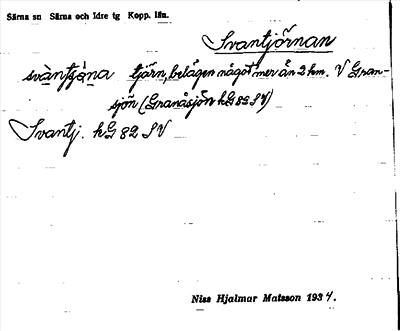 Särna sn Särna och Idre tg Kopp. län.
Svantjörnan
svàntjø̀na tjärn, belägen något mer än 2 km. V Gran-
sjön (Granåsjön kG 82 SV)
Svantj. kG 82 SV
Niss Hjalmar Matsson 1934.